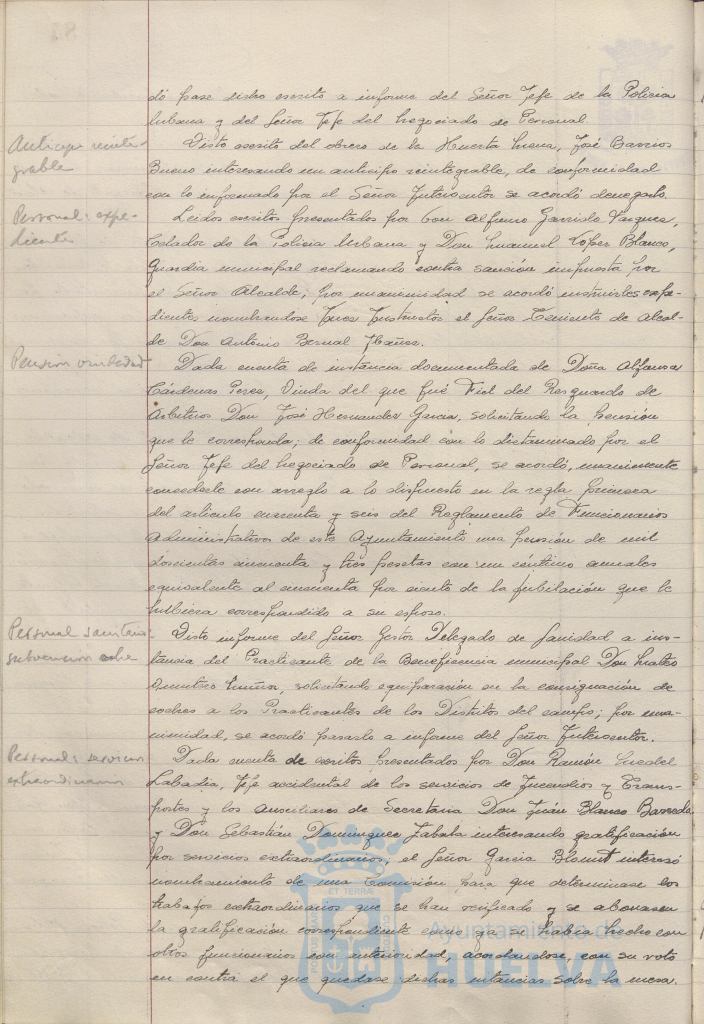 dó pase dicho escrito a informe del Señor Jefe de la Policia
Urbana y del Señor Jefe del Negociado de Personal
Anticipo reinte-
grable
Visto escrito del obrero de la Huerta Mena, José Barrios
Bueno interesando un anticipo reintegrable, de conformidad
con lo informado por el Señor Interventor se acordó denegarlo.
Personal: expe-
dientes
Leidos escritos presentados por Don Alfonso Garrido Vazquez,
Celador de la Policia Urbana y Don Manuel López Blanco,
Guardia municipal reclamando contra sanción impuesta por
el Señor Alcalde; por unanimidad se acordó instruirles expe-
dientes nombrandose Juez Instructor el Señor Teniente de Alcal-
de Don Antonio Bernal Ibañez.
Pension viudedad
Dada cuenta de instancia documentada de Doña Alfonsa
Cárdenas Perez, Viuda del que fué Fiel del Resguardo de
Arbitrios Don José Hernandez Garcia, solicitando la pensión
que le corresponda; de conformidad con lo dictaminado por el
Señor Jefe del Negociado de Personal, se acordó, unanimente
concederle con arreglo a lo dispuesto en la regla primera
del artículo cuarenta y seis del Reglamento de Funcionarios
administrativos de este Ayuntamiento una pensión de mil
doscientas cincuenta y tres pesetas con un céntimo anuales
equivalente al cincuenta por ciento de la jubilación que le
hubiera correspondido a su esposo.
Personal sanitario:
subvencion coche
Visto informe del Señor Gestor Delegado de Sanidad a ins-
tancia del Practicante de la Beneficencia municipal Don Mateo
Quintero Muñoz, solicitando equiparación en la consignación de
coches a los Practicantes de los Distritos del campo; por una-
nimidad, se acordó pasarla a informe del Señor Interventor.
Personal: servicios
extraordinarios
Dada cuenta de escritos presentados por Don Ramón
Labadia, Jefe accidental de los servicios de Incendios y Trans-
portes y los Auxiliares de Secretaria Don Juán Blanco Barreda
y Don Sebastián Dominguez Zabala interesando gratificación
por servicios extraordinarios; el Señor Garcia interesó
nombramiento de una Comisión para que determinase los
trabajos extraordinarios que se han verificado y se abonasen
la gratificación correspondiente como ya se habia hecho con
otros funcionarios con anterioridad, acordandose, con su voto
en contra el que quedase dichas instancias sobre la mesa.
Ayuntamiento de
HUELVA